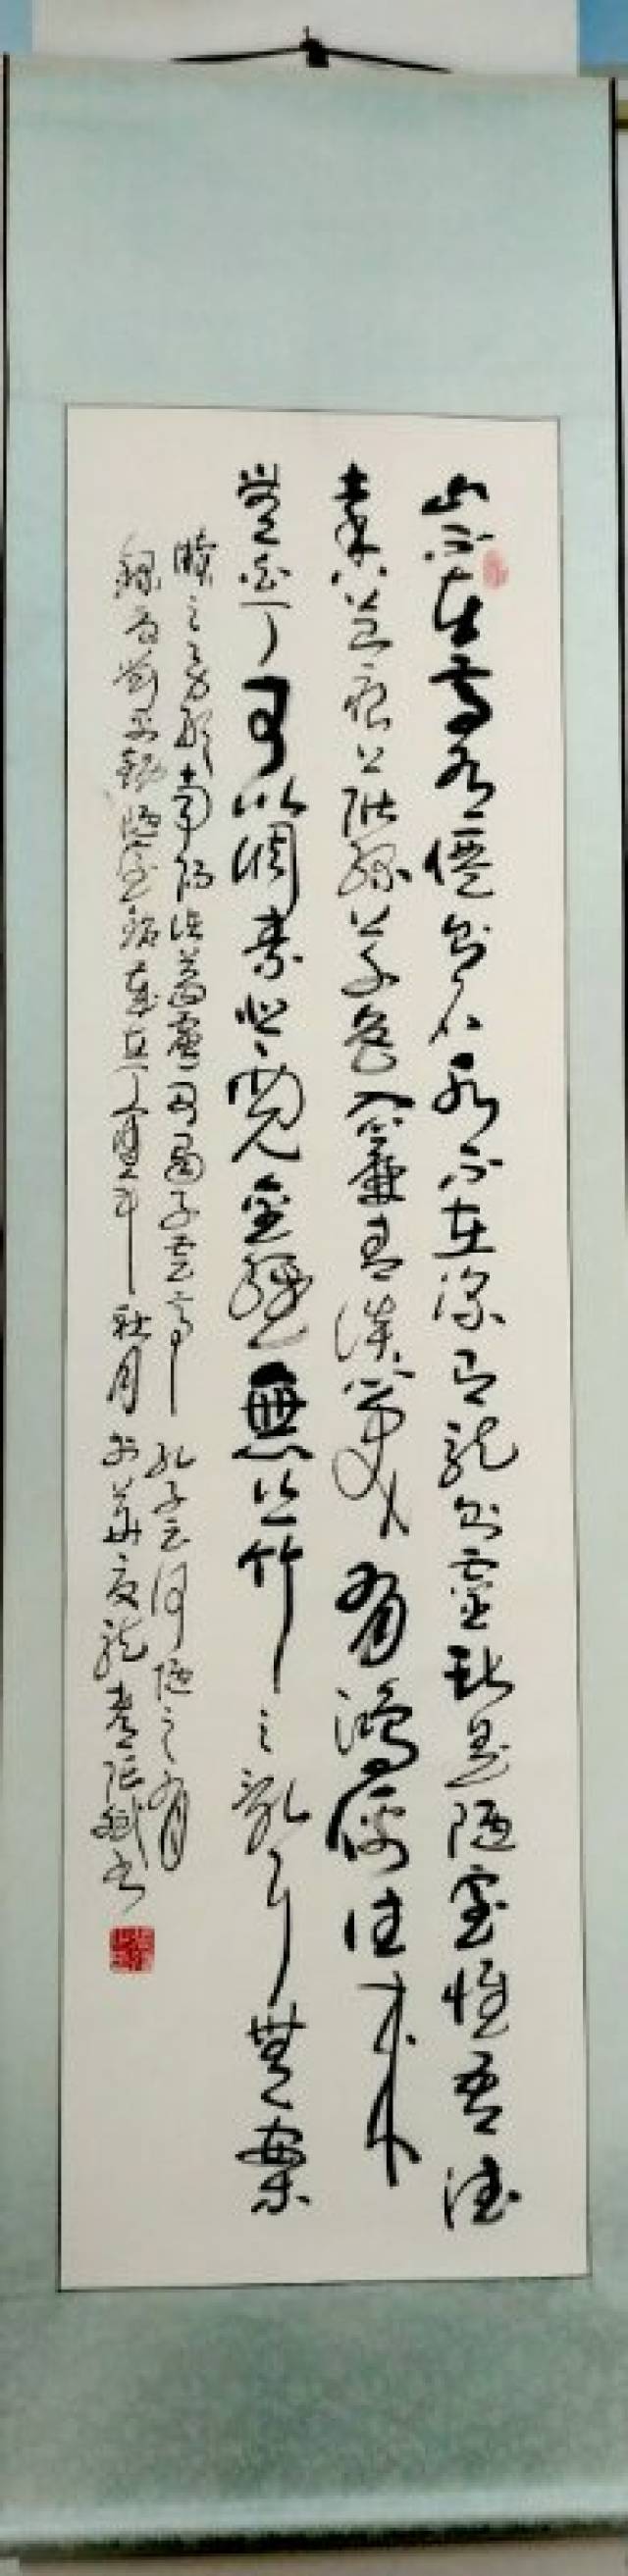 山不在高有僊則名水不在深有龍則靈斯是陋室惟吾德
馨苔痕上階綠草色入簾青談笑有鴻儒往來
無白丁可以調素琴閱金經無絲竹之亂耳無案
牘之勞形南陽諸葛廬西蜀子雲亭孔子云何陋之有
錄劉禹錫陋室銘歲在丁酉年秋月於